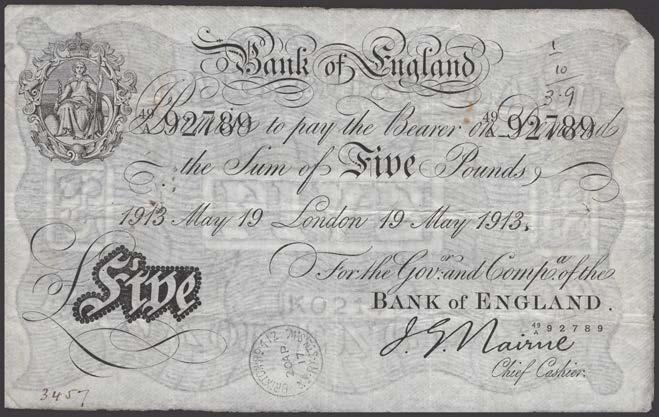 Bank of England
1
10
3·9
49/A 92789 49/A 92789
I Promise to pay the Bearer on Demand
the Sum of Five Pounds
1913 May 19 London 19 May 1913.
For the Gov.r and Comp.a of the
BANK of ENGLAND.
Five
49/A 92789
J. G. Nairne
Chief Cashier.
17
3457